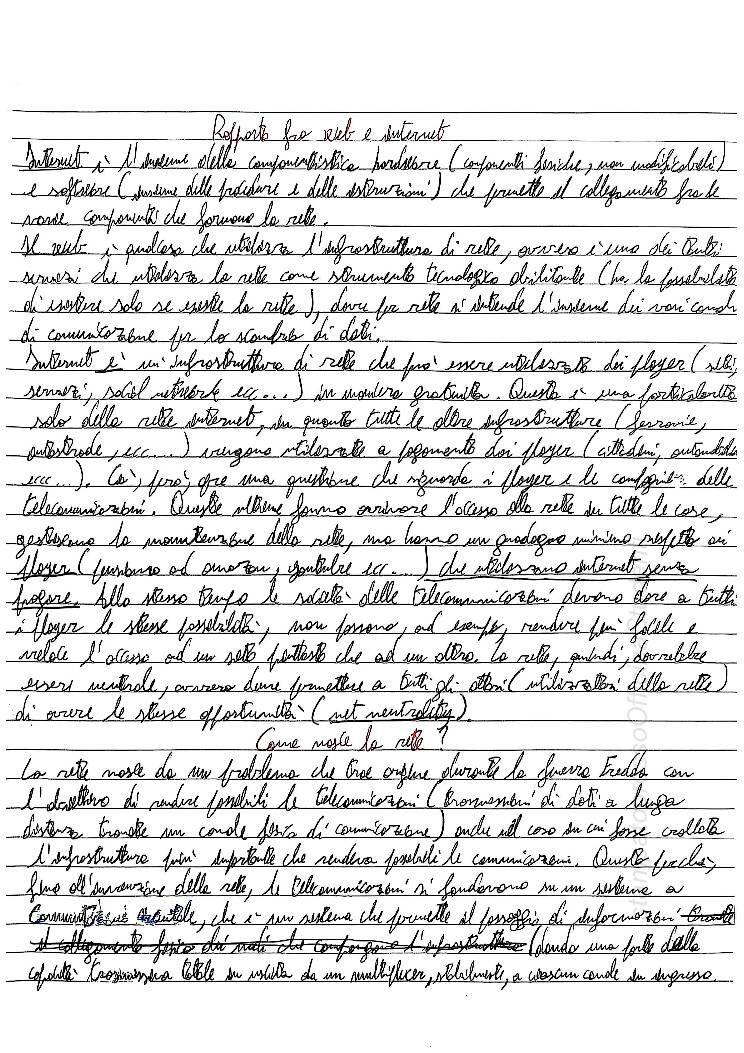 Rapporto fra web e internet
Internet è l'insieme della componentistica hardware (componenti fisiche, non modificabili)
e software (insieme delle procedure e delle istruzioni) che permette il collegamento fra le
varie componenti che formano la rete.
Il web è qualcosa che utilizza l'infrastruttura di rete, ovvero è uno dei tanti
servizi che utilizza la rete come strumento tecnologico abilitante (ha la possibilità
di esistere solo se esiste la rete), dove per rete si intende l'insieme dei vari canali
di comunicazione per lo scambio di dati.
Internet è un'infrastruttura di rete che può essere utilizzata dai player (siti,
servizi, social network ecc...) in maniera gratuita. Questa è una particolarità
solo della rete internet, in quanto tutte le altre infrastrutture (ferrovie,
autostrade, ecc...) vengono utilizzate a pagamento dai player (cittadini, automobilisti
ecc...). Ciò, però, apre una questione che riguarda i player e le compagnie delle
telecomunicazioni. Queste ultime fanno arrivare l'accesso alla rete in tutte le case,
gestiscono la manutenzione della rete, ma hanno un guadagno minimo rispetto ai
player (pensiamo ad amazon, youtube ecc...) che utilizzano internet senza
pagare. Allo stesso tempo le società delle telecomunicazioni devono dare a tutti
i player le stesse possibilità, non possono, ad esempio, rendere più facile e
veloce l'accesso ad un sito piuttosto che ad un altro. La rete, quindi, dovrebbe
essere neutrale, ovvero deve permettere a tutti gli attori (utilizzatori della rete)
di avere le stesse opportunità (net neutrality).
Come nasce la rete?
La rete nasce da un problema che trae origine durante la Guerra Fredda con
l'obiettivo di rendere possibili le telecomunicazioni (trasmissioni di dati a lunga
distanza tramite un canale fisico di comunicazione) anche nel caso in cui fosse crollata
l'infrastruttura più importante che rendeva possibili le comunicazioni. Questo perché,
fino all'invenzione della rete, le telecomunicazioni si fondavano su un sistema a
che è un sistema che permette il passaggio di informazioni
il collegamento fisico dei nodi che compongono l'infrastruttura (dando una parte della
capacità trasmissiva totale in uscita da un multiplexer, stabilmente, a ciascun canale in ingresso.